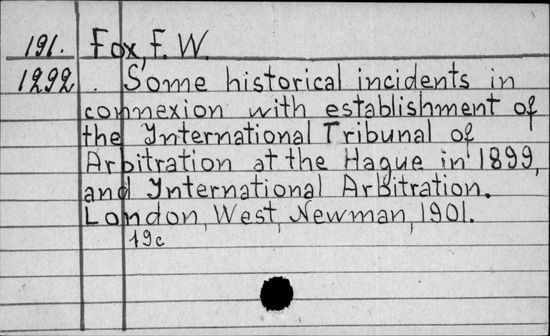 191. Fox, F. W.
1292. Some historical incidents in
connexion with establishment of
the International Tribunal of
Arbitration at the Hague in 1899,
and International Arbitration.
London, West, Newman, 1901.
19c